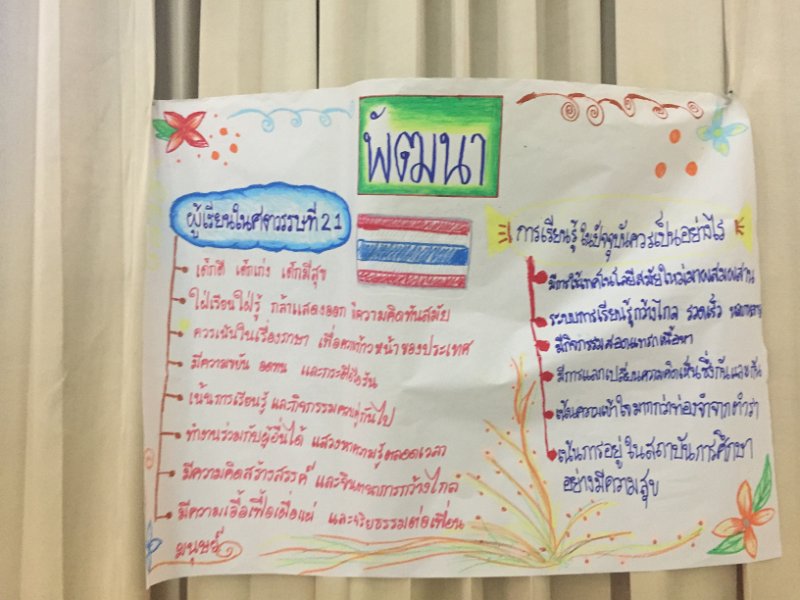 พัฒนา
ผู้เรียนในศตวรรษที่ 21
เด็กดี เด็กเก่ง เด็กมีสุข
ใฝ่เรียนใฝ่รู้ กล้าแสดงออก มีความคิดทันสมัย
ควรเน้นในเรื่องภาษา เพื่อความก้าวหน้าของประเทศ
มีความขยัน อดทน และกระตือรือร้น
เน้นการเรียนรู้ และกิจกรรมควบคู่กันไป
ทำงานร่วมกับผู้อื่นได้ แสวงหาความรู้ตลอดเวลา
มีความคิดสร้างสรรค์ และจินตนาการกว้างไกล
มีความเอื้อเฟื้อเผื่อแผ่ และจริยธรรมต่อเพื่อน
มนุษย์
การเรียนรู้ในปัจจุบันควรเป็นอย่างไร
มีการใช้เทคโนโลยีสมัยใหม่มาผสมผสาน
ระบบการเรียนรู้กว้างไกล รวดเร็ว
มีกิจกรรมสอดแทรกเนื้อหา
มีการแลกเปลี่ยนความคิดเห็นซึ่งกันและกัน
เน้นความเข้าใจมากกว่าท่องจำจากตำรา
เน้นการอยู่ในสถาบันการศึกษา
อย่างมีความสุข